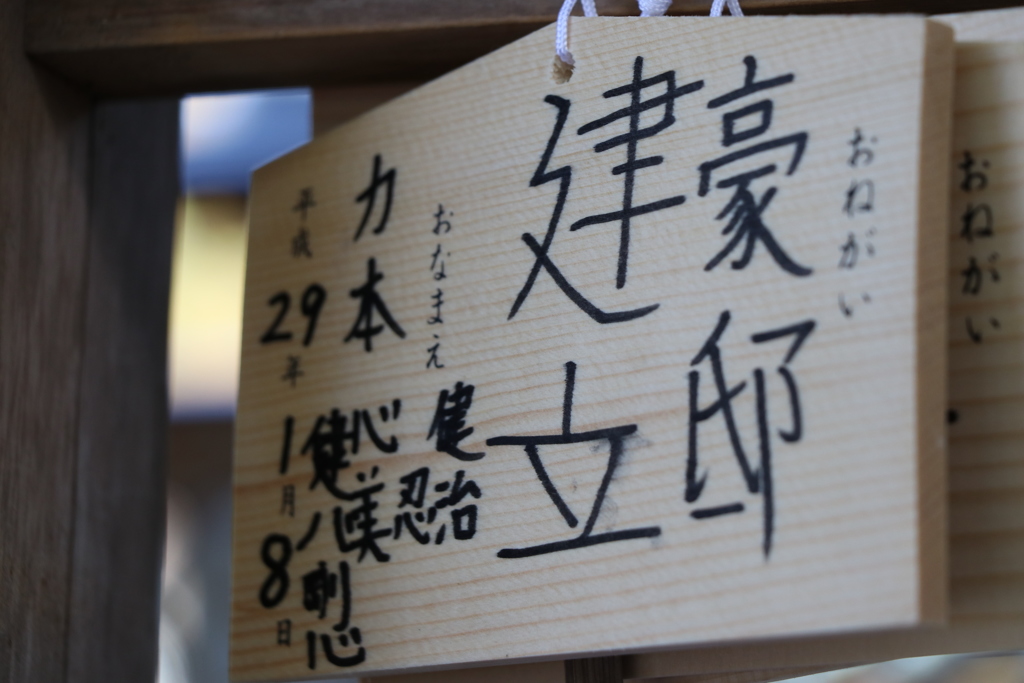 おねがい
おねがい
豪邸
建立
おなまえ
力本
健治
忍
心美
健八
剛心
平成29年1月8日